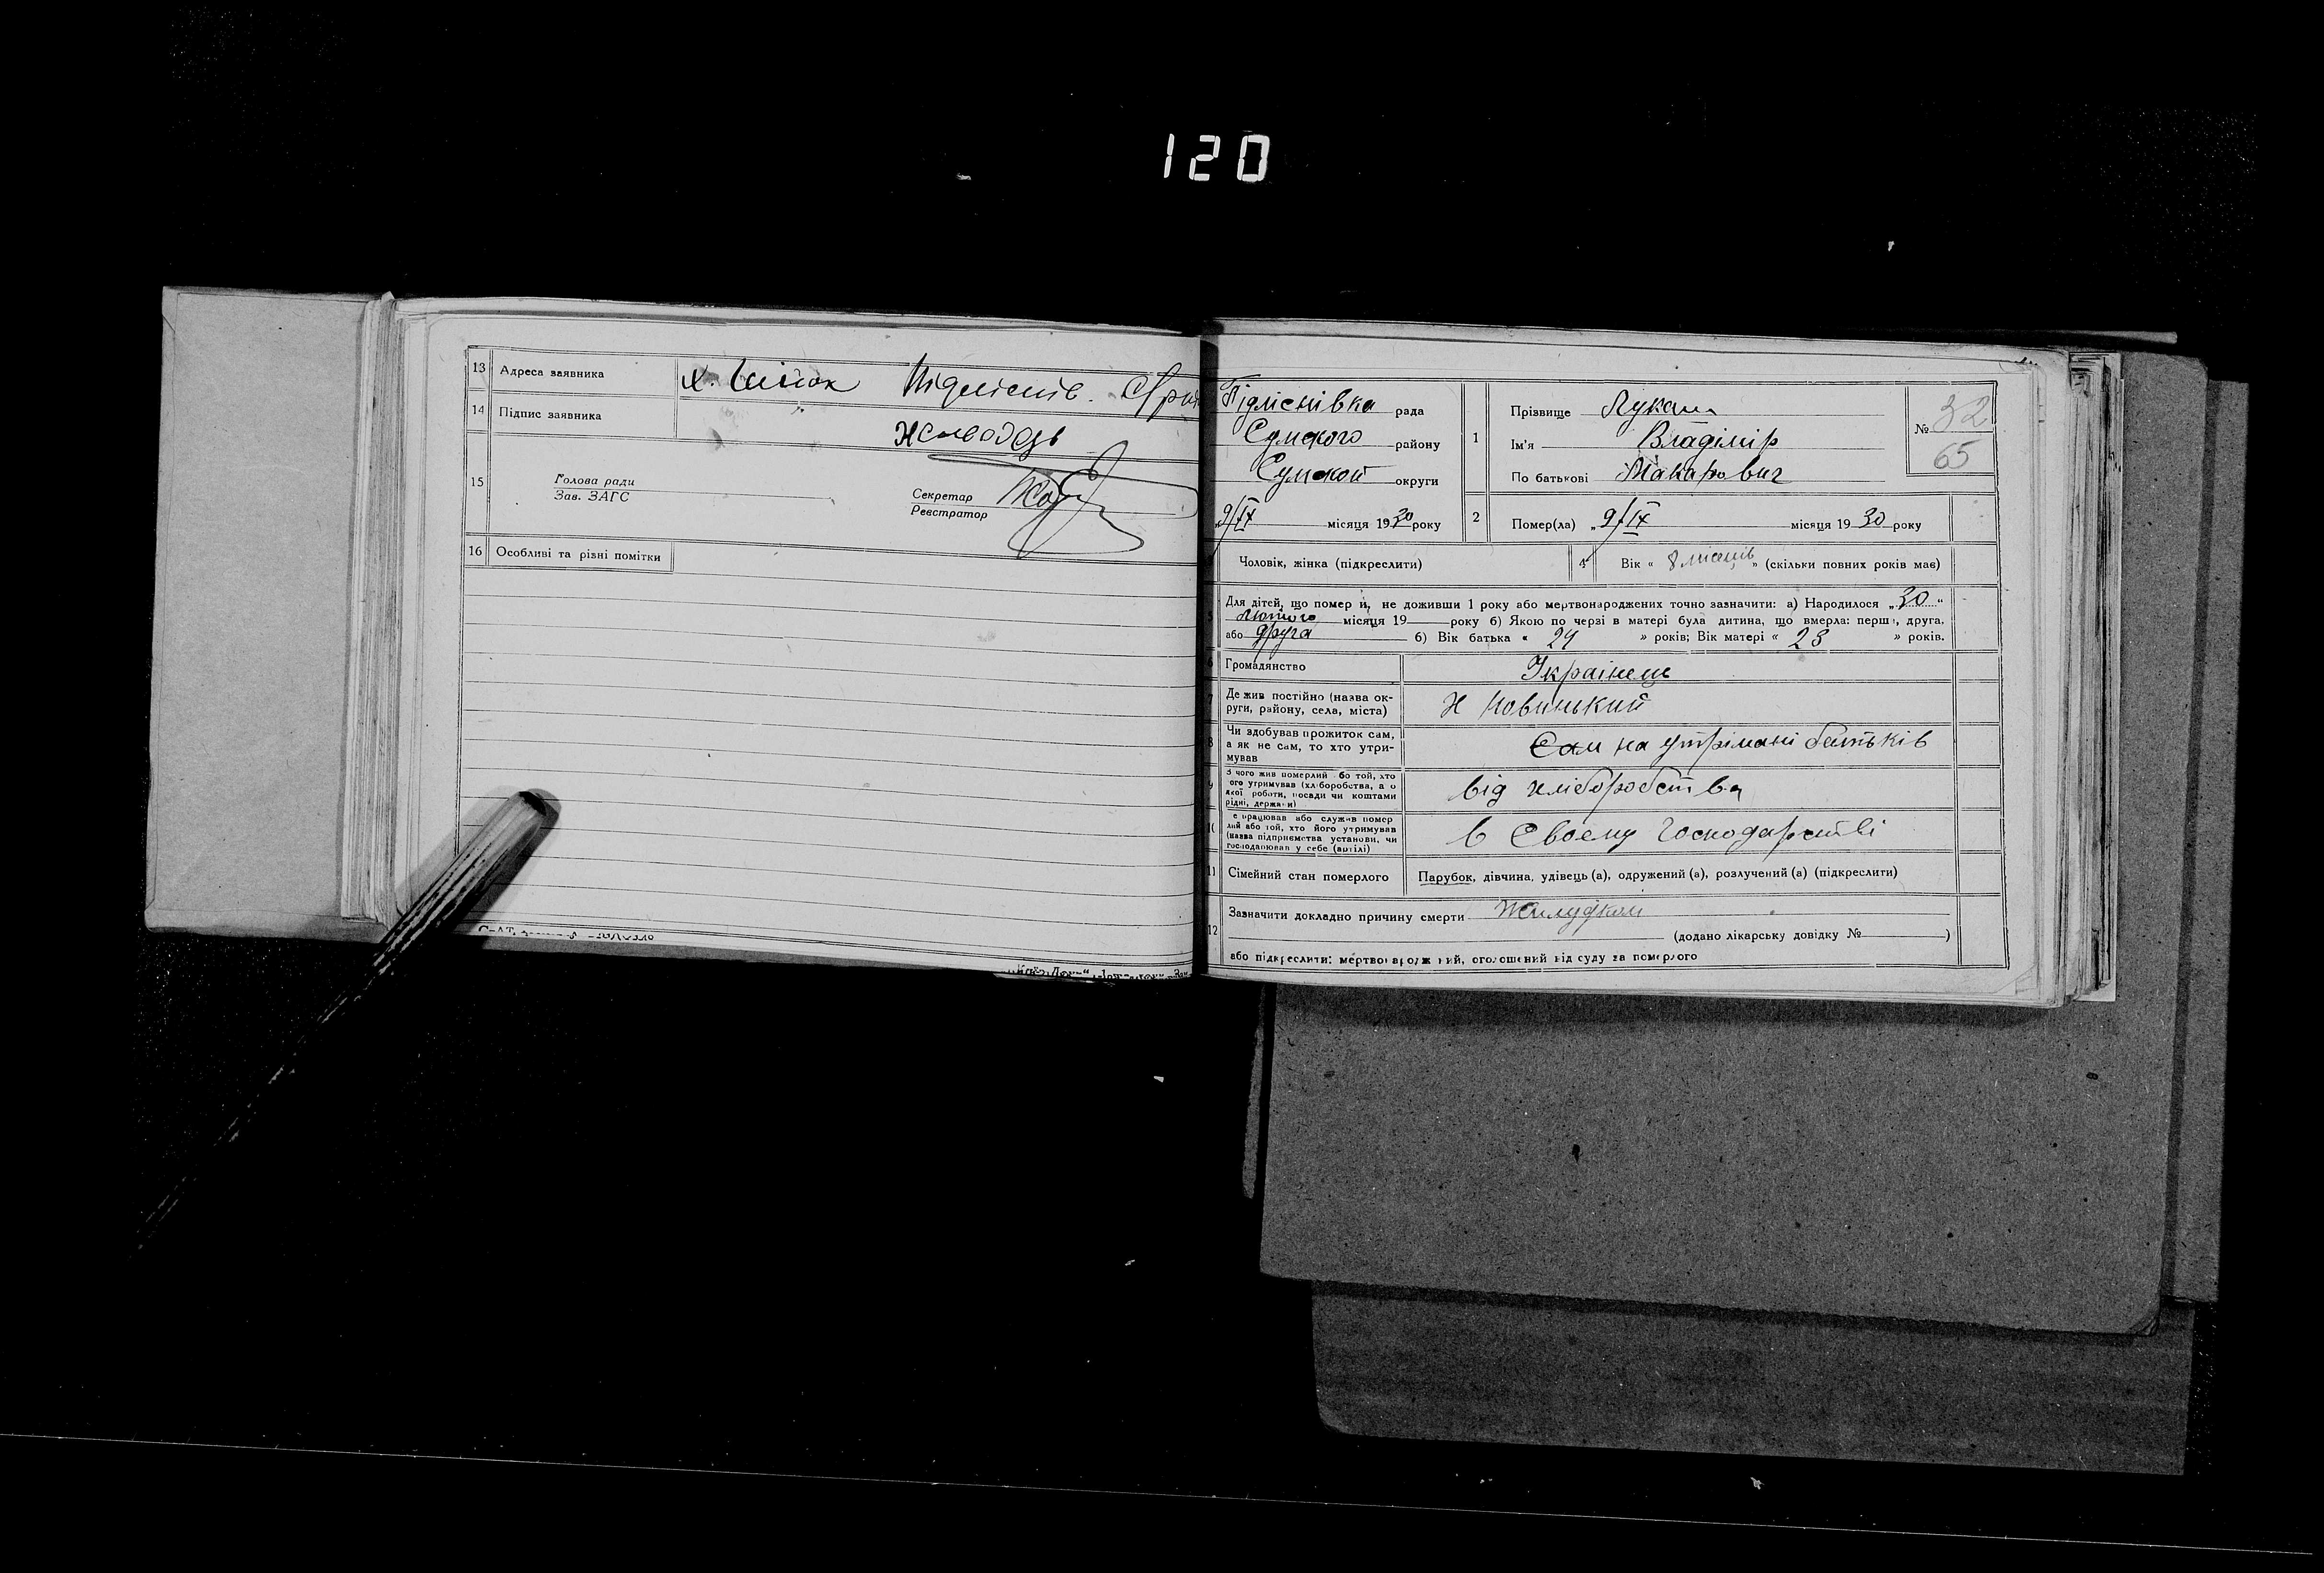 120
13 Адреса заявника х. Підліснів.
14 Підпис заявника
15 Голова ради
Зав. ЗАГС
Секретар
Реєстратор
16 Особливі та різні помітки
Підліснівка рада
Сумского району
Сумской округи
„9/IX місяця 1930 року
1 Прізвище Лукаш
Ім'я Владімір
По батькові Макарович
№ 32
65
2 Помер(ла) „9/IX місяця 1930 року
Чоловік, жінка (підкреслити)
4 Вік « 8 місяців » (скільки повних років має)
5 Для дітей, що помер и, не доживши 1 року або мертвонароджених точно зазначити: а) Народилося „30“
Лютого місяця 19 року б) Якою по черзі в матері була дитина, що вмерла: перш, друга,
або друга б) Вік батька « 24 » років; Вік матері « 23 » років.
6 Громадянство Українець
7 Де жив постійно (назва ок-
руги, району, села, міста) Х Новинький
8 Чи здобував прожиток сам,
а як не сам, то хто утри-
мував Сам на утрімані батьків
9 З чого жив померлий або той, хто
ого утримував (хліборобства, а о
якої роботи, посади чи коштами
рідні, держави) від хліборобства
10 е працював або служив помер
лий або той, хто його утримував
(назва підприємства установи, чи
господарював у себе (артілі) в своему господарстві
11 Сімейний стан померлого Парубок, дівчина, удівець (а), одружений (а), розлучений (а) (підкреслити)
12 Зазначити докладно причину смерти Жилудком
(додано лікарську довідку № )
або підкреслити: мертвонароджений, оголошений від суду за померлого